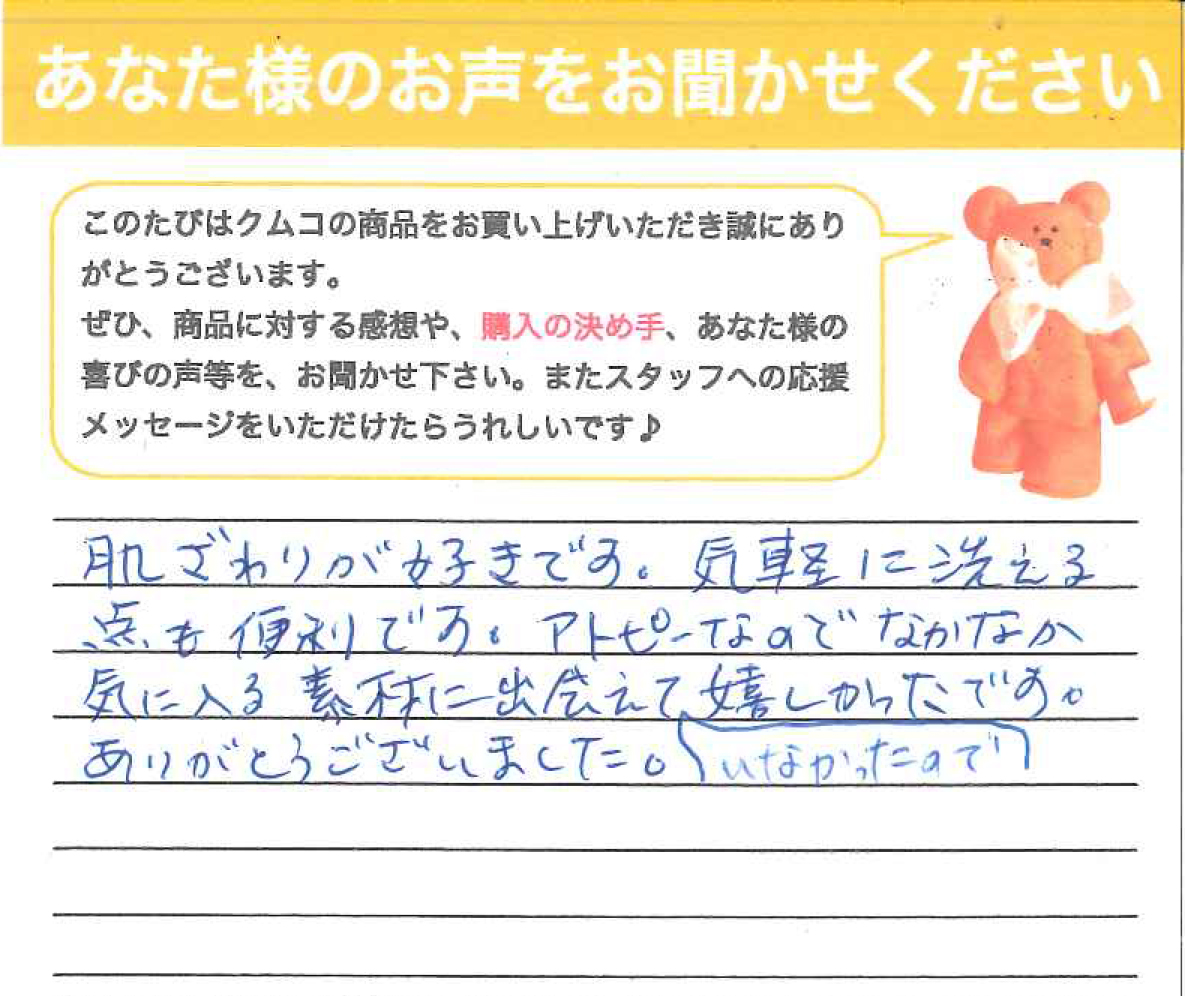 あなた様のお声をお聞かせください
このたびはクムコの商品をお買い上げいただき誠にあり
がとうございます。
ぜひ、商品に対する感想や、購入の決め手、あなた様の
喜びの声等を、お聞かせ下さい。またスタッフへの応援
メッセージをいただけたらうれしいです♪
肌ざわりが好きです。気軽に洗える
点も便利です。アトピーなのでなかなか
気に入る素材に出会えて嬉しかったです。
ありがとうございました。いなかったので